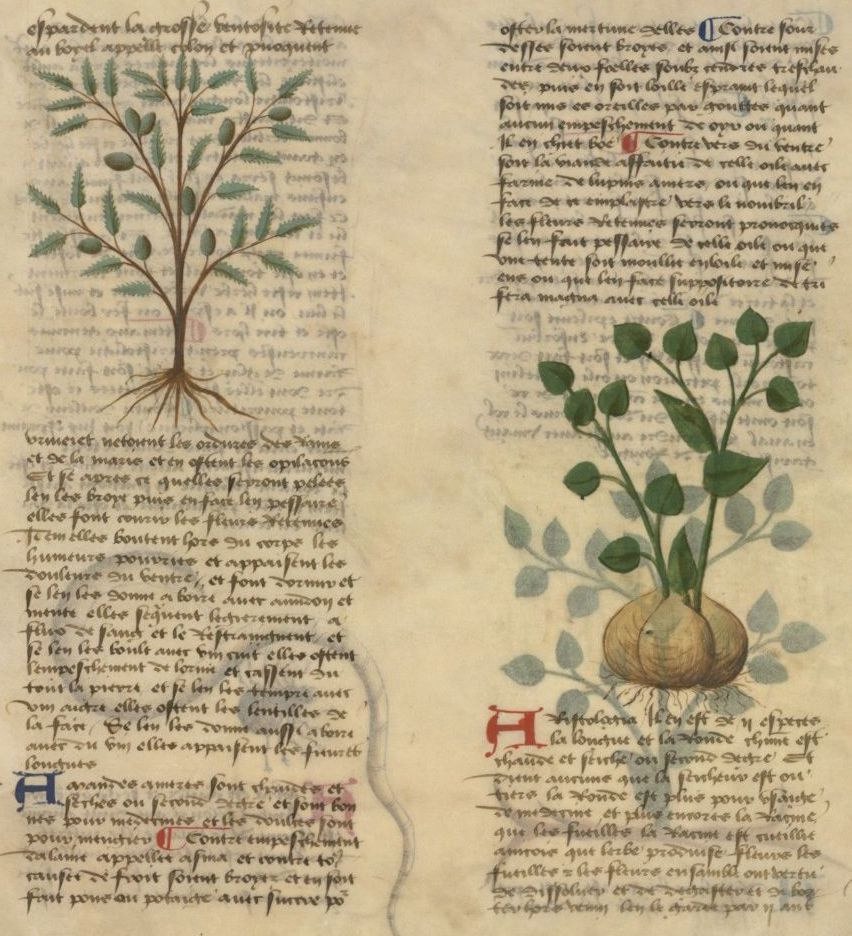 espardent la grosse ventosite Retenue
au boyel appelle colon et prouquent
urinent netoient les ordures des Rains
et de la maris et en ostent les opilacions
Et se apres ce quelles seront pelees
len les broye puis en face len pessaire
elles font courir les fleurs Retenues
Item elles boutent hors du corps les
humeurs pourries et appaisent les
douleurs du ventre et font dormir et
se len les donne a boire avec amidon et
mente elles sequent legierement a
flux de sang et le Restraingnent et
se len les boult avec vin cuit elles ostent
lempeschement de lorine et cassent du
tout la pierre et se len les tempre avec
vin aigre elles ostent les lentilles de
la face Se len les donne aussi a boire
avec du vin elles appaisent les fievres
longues
Amandes ameres sont chaudes et
seches ou second degre et sont bon
nes pour medecines et les doulces sont
pour mengier Contre empeschement
dalaine appelle asma et contre tos
causee de froit soient broyez et en soit
fait pous ou potaige avec succre po
oster lamertume delles Contre sour
desses soient broyes et ainsi soient mises
entre deux foelles soubz cendres treschau
des puis en soit loille espraint lequel
soit mis es oreilles par gouttes quant
aucun empeschement de oyr ou quant
il en chiet boe Contre vers du ventre
soit la viande affaitie de celle oile avec
farine de lupins amers ou que len en
face de ce emplastre vers le nombril
les fleurs Retenues seront provoquees
se len fait pessaire de celle oile ou que
une tente soit moullie en loile et mise
ens ou que len face suppositoire de tri
fera magna avec celle oile
ARistologia Il en est de ii especes
la longue et la Ronde chune est
chaude et seiche ou second degre Et
dient aucuns que la seicheur est ou
tiers la Ronde est plus pour usaige
de medecine et plus encores la Racine
que les fueilles la Racine est cueillie
aincois que lerbe produise fleurs les
fueilles et les fleurs ensamble ont vertu
de dissolver et de degaster et de bou
ter hors venin len le garde par ii ans